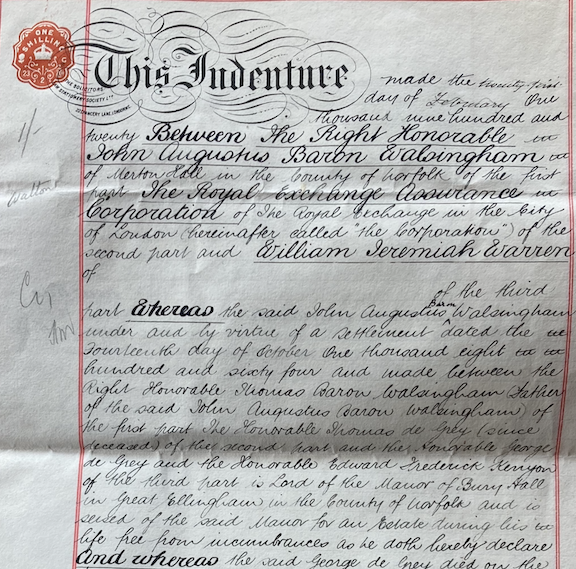 ONE
SHILLING
This Indenture made the twenty first
day of February One
thousand nine hundred and
1/-
twenty Between The Right Honorable
John Augustus Baron Walsingham
Walton
of Merton Hall in the County of Norfolk of the first
part The Royal Exchange Assurance
Corporation of The Royal Exchange in the City
of London (hereinafter called "the Corporation") of the
second part and William Jeremiah Warren
of
of the third
part Whereas the said John Augustus Baron Walsingham
under and by virtue of a Settlement dated the
Fourteenth day of October One thousand eight
hundred and sixty four and made between the
Right Honorable Thomas Baron Walsingham (Father
of the said John Augustus Baron Walsingham) of
the first part The Honorable Thomas de Grey (since
deceased) of the second part and the Honorable George
de Grey and the Honorable Edward Frederick Kenyon
of the third part is Lord of the Manor of Bury Hall
in Great Ellingham in the County of Norfolk and is
seised of the said Manor for an Estate during his
life free from incumbrances as he doth hereby declare
And whereas the said George de Grey died on the